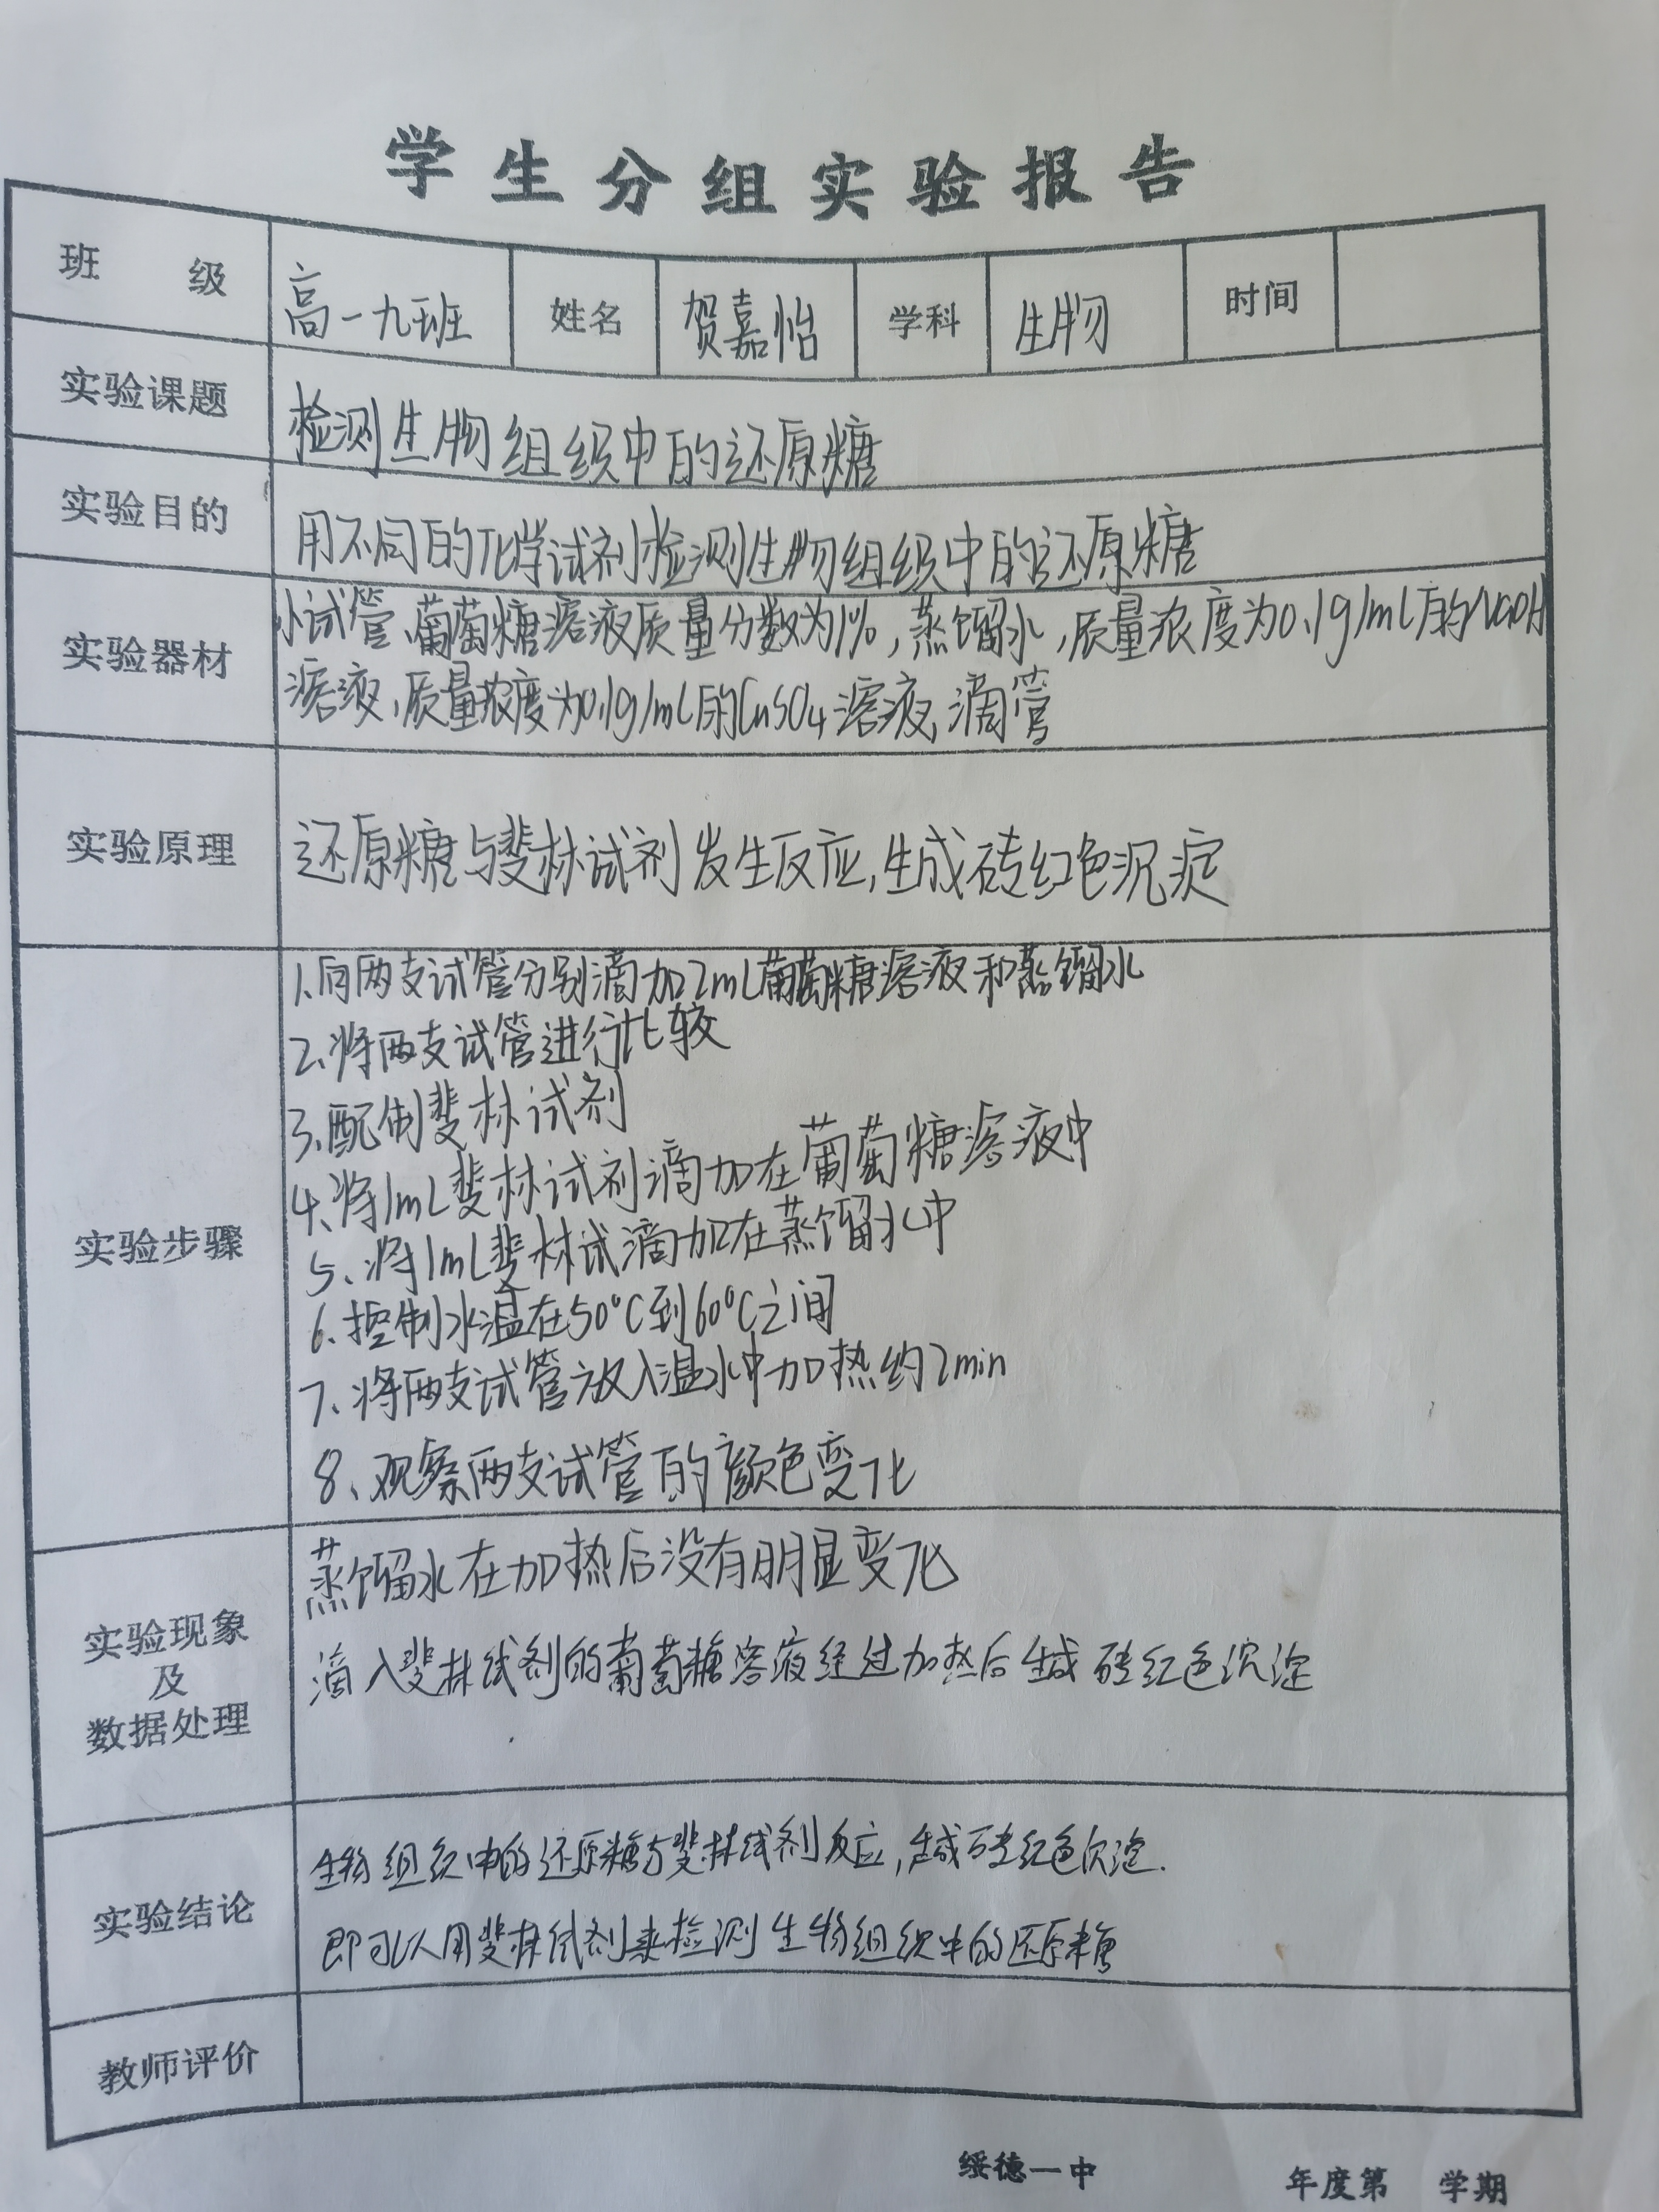 学生分组实验报告
班级 高一九班 姓名 贺嘉怡 学科 生物 时间
实验课题 检测生物组织中的还原糖
实验目的 用不同的化学试剂检测生物组织中的还原糖
实验器材 小试管、葡萄糖溶液质量分数为1%,蒸馏水,质量浓度为0.1g/mL的NaOH
溶液,质量浓度为0.1g/mL的CuSO4溶液,滴管
实验原理 还原糖与斐林试剂发生反应,生成砖红色沉淀
实验步骤
1、向两支试管分别滴加2mL葡萄糖溶液和蒸馏水
2、将两支试管进行比较
3、配制斐林试剂
4、将1mL斐林试剂滴加在葡萄糖溶液中
5、将1mL斐林试滴加在蒸馏水中
6、控制水温在50°C到60°C之间
7、将两支试管放入温水中加热约2min
8、观察两支试管的颜色变化
实验现象
及
数据处理
蒸馏水在加热后没有明显变化
滴入斐林试剂的葡萄糖溶液经过加热后生成砖红色沉淀
实验结论
生物组织中的还原糖与斐林试剂反应,生成砖红色沉淀.
即可以用斐林试剂来检测生物组织中的还原糖
教师评价
绥德一中 年度第 学期